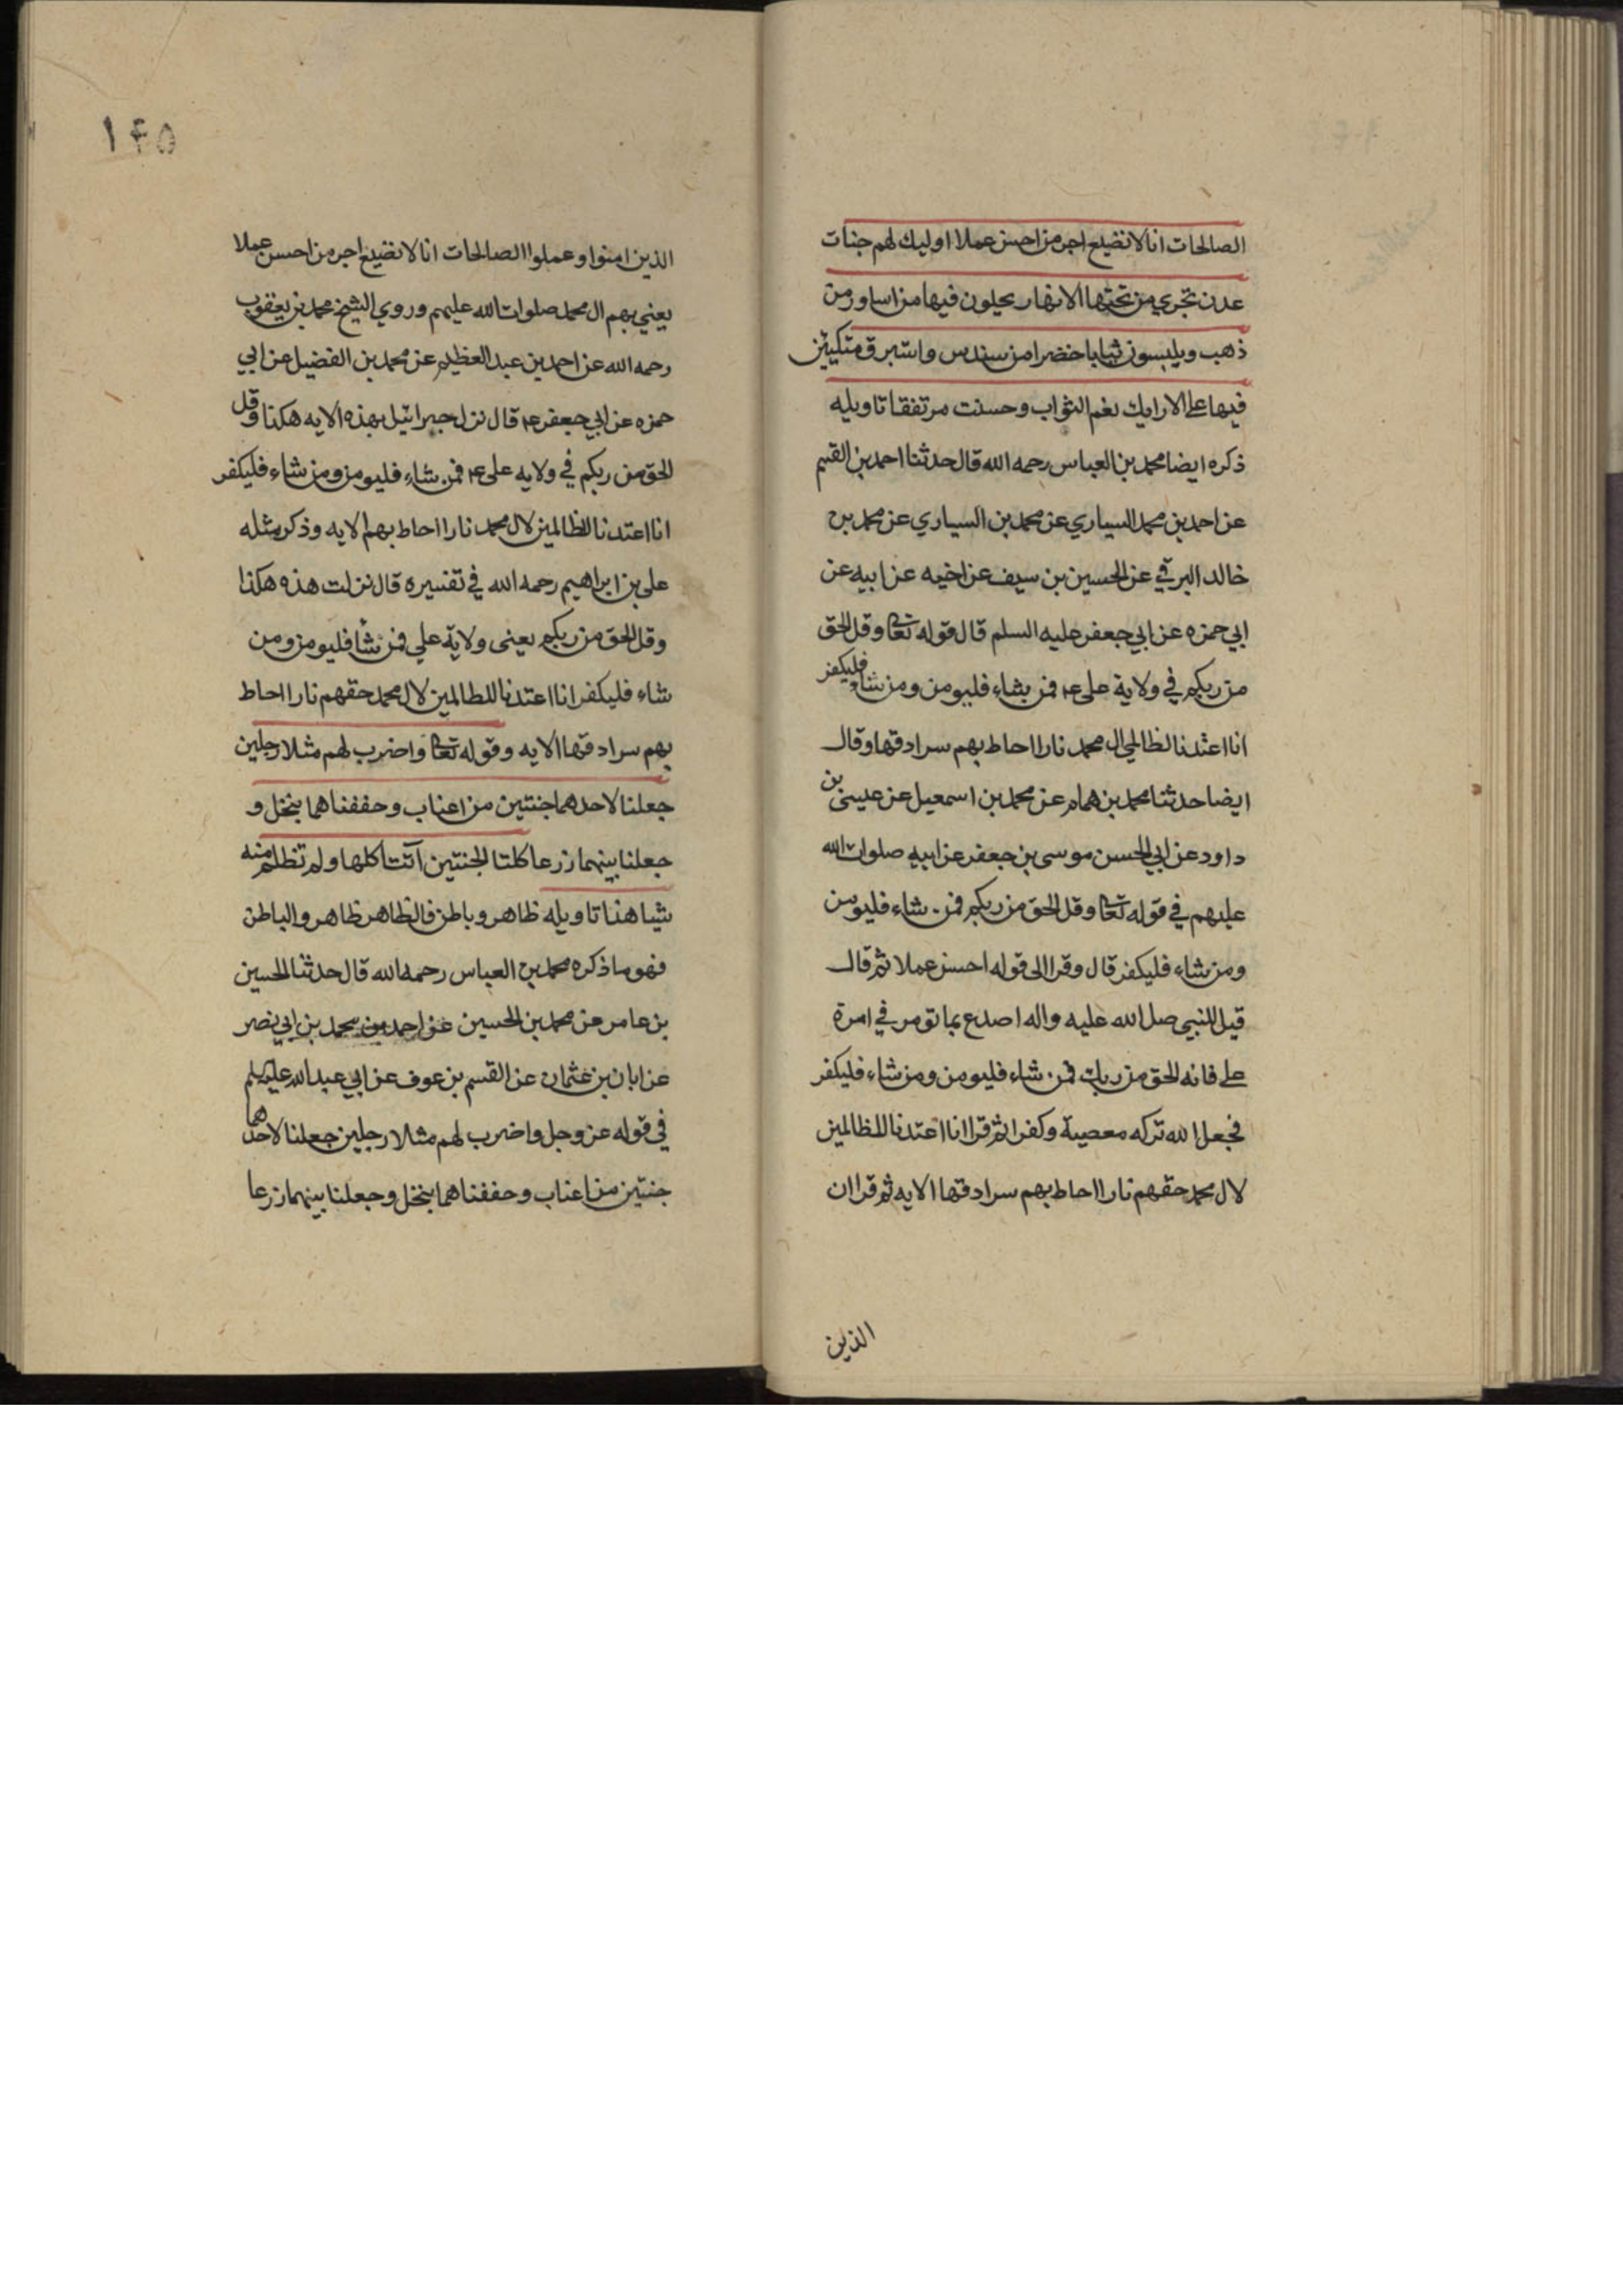 الصالحات انا لا نضيع اجر من احسن عملا اوليك لهم جنات
عدن تجري من تحتها الانهار يحلون فيها من اساور من
ذهب ويلبسون ثيابا خضرا من سندس واستبرق متكيين
فيها على الارايك نعم الثواب وحسنت مرتفقا تاويله
ذكره ايضا محمد بن العباس رحمه الله قال حدثنا احمد بن القسم
عن احمد بن محمد السياري عن محمد بن السياري عن محمد بن
خالد البرقي عن الحسين بن سيف عن اخيه عن ابيه عن
ابي حمزه عن ابي جعفر عليه السلم قال قوله تعا وقل الحق
من ربكم في ولاية على ء فمن شاء فليومن ومن شاء فليكفر
انا اعتدنا لظالمي ال محمد نارا احاط بهم سرادقها وقال
ايضا حدثنا محمد بن همام عن محمد بن اسمعيل عن عيسى بن
داود عن ابي الحسن موسى بن جعفر عن ابيه صلوات الله
عليهم في قوله تعا وقل الحق من ربكم فمن شاء فليومن
ومن شاء فليكفر قال وقرا الى قوله احسن عملا ثم قال
قيل للنبي صلى الله عليه واله اصدع بما تومر في امرة
على فانه الحق من ربك فمن شاء فليومن ومن شاء فليكفر
فجعل الله تركه معصية وكفرا ثم قرا انا اعتدنا للظالمين
لال محمد حقهم نارا احاط بهم سرادقها الايه ثم قرا ان
الذين
١۴۵
الذين امنوا وعملوا الصالحات انا لا نضيع اجر من احسن عملا
يعني بهم ال محمد صلوات الله عليهم وروي الشيخ محمد بن يعقوب
رحمه الله عن احمد بن عبد العظيم عن محمد بن الفضيل عن ابي
حمزه عن ابي جعفر ء قال نزل جبرائيل بهذه الايه هكذا وقل
الحق من ربكم في ولايه على ء فمن شاء فليومن ومن شاء فليكفر
انا اعتدنا للظالمين لال محمد نارا احاط بهم الايه وذكر مثله
على بن ابراهيم رحمه الله في تفسيره قال نزلت هذه هكذا
وقل الحق من ربكم يعنى ولاية علي فمن شأ فليومن ومن
شاء فليكفر انا اعتدنا للظالمين لال محمد حقهم نارا احاط
بهم سرادقها الايه وقوله تعا واضرب لهم مثلا رجلين
جعلنا لاحدهما جنتين من اعناب وحففناهما بنخل و
جعلنا بينهما زرعا كلتا الجنتين آتت اكلها ولم تظلم منه
شيا هذا تاويله ظاهر وباطن فالظاهر ظاهر والباطن
فهو ما ذكره محمد بن العباس رحمه الله قال حدثنا الحسين
بن عامر عن محمد بن الحسين عن احمد بن محمد بن ابي نصر
عن ابان بن عثمان عن القسم بن عوف عن ابي عبد الله عليه السلم
في قوله عز وجل واضرب لهم مثلا رجلين جعلنا لاحدهما
جنتين من اعناب وحففناهما بنخل وجعلنا بينهما زرعا